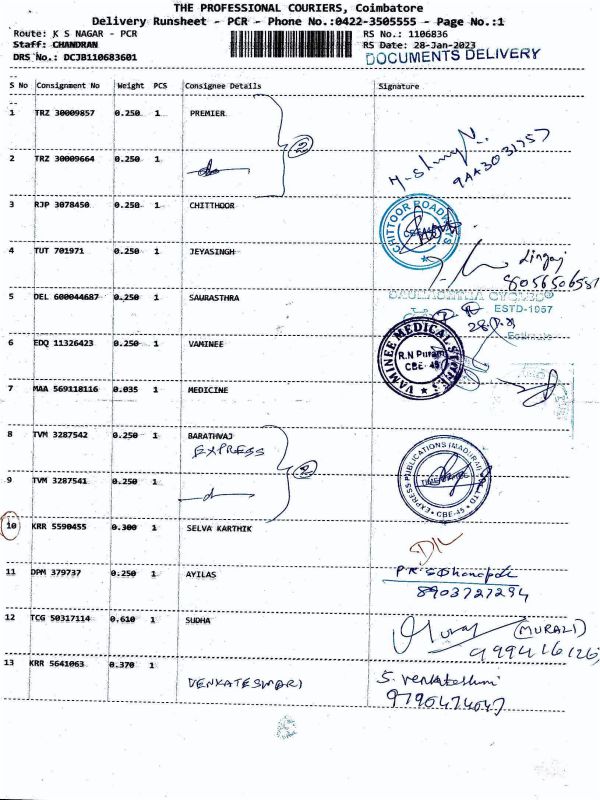 THE PROFESSIONAL COURIERS, Coimbatore
Delivery Runsheet - PCR - Phone No.:0422-3505555 - Page No.:1
Route: K S NAGAR - PCR
RS No.: 1106836
Staff: CHANDRAN
RS Date: 28-Jan-2023
DRS No.: DCJB110683601
DOCUMENTS DELIVERY
S No Consignment No Weight PCS Consignee Details Signature
1 TRZ 30009857 0.250 1 PREMIER
2
2 TRZ 30009664 0.250 1
3 RJP 3078450 0.250 1 CHITTHOOR
CHITTOOR ROADWAYS
4 TUT 701971 0.250 1 JEYASINGH
8056506581
5 DEL 600044687 0.250 1 SAURASTHRA
ESTD-1957
28
6 EDQ 11326423 0.250 1 VAMINEE
VAMINEE MEDICAL STORES
R.N Puram
CBE- 45
7 MAA 569118116 0.035 1 MEDICINE
8 TVM 3287542 0.250 1 BARATHVAJ
EXPRESS
2
EXPRESS PUBLICATIONS (MADURAI) LTD
CBE-45
9 TVM 3287541 0.250 1
10 KRR 5590455 0.300 1 SELVA KARTHIK
D/L
11 DPM 379737 0.250 1 AYILAS
8903727294
12 TCG 50317114 0.610 1 SUDHA
(MURALI)
13 KRR 5641063 0.370 1
VENKATESWARI
S. Venkateshwari
9790474047